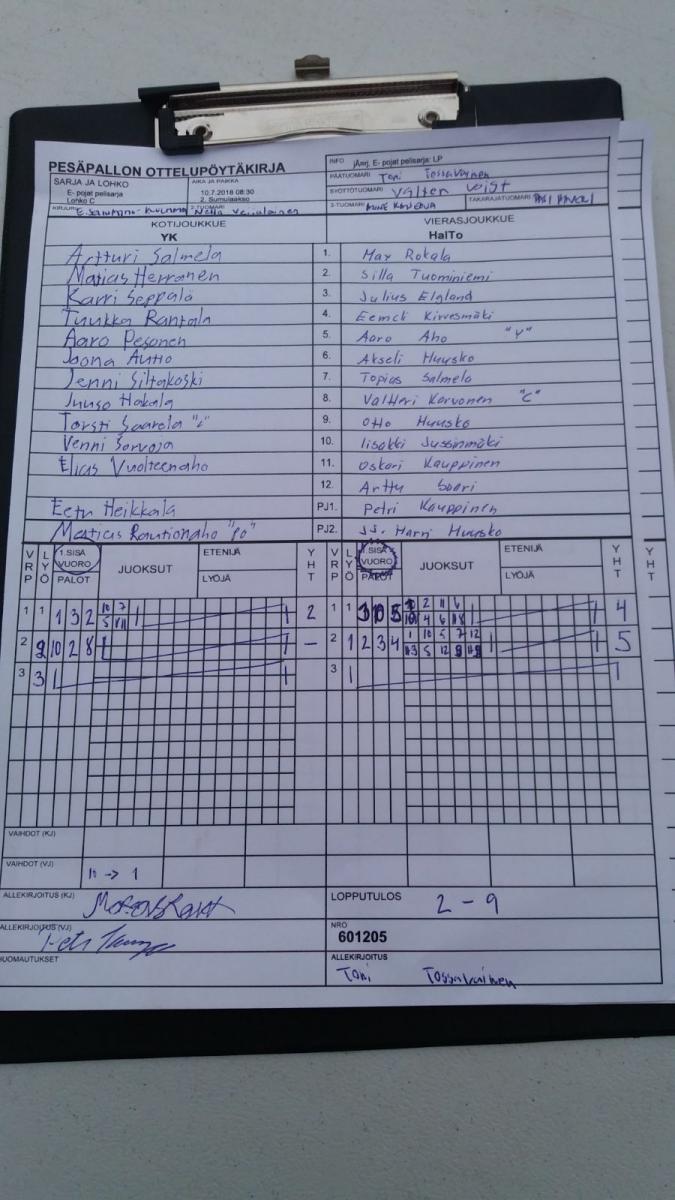 PESÄPALLON OTTELUPÖYTÄKIRJA
INFO jÄmj. E- pojat pelisarja: LP
SARJA JA LOHKO
E- pojat pelisarja
Lohko C
AIKA JA PAIKKA
10.7.2018 08:30
2. Sumulaakso
PÄÄTUOMARI Toni Tossavainen
SYÖTTÖTUOMARI Valten
2-TUOMARI
3-TUOMARI
TAKARAJATUOMARI
KOTIJOUKKUE
YK
VIERASJOUKKUE
HalTo
Artturi Salmela 1. Max Rokala
Matias Herranen 2. Silla Tuominiemi
Karri Seppälä 3. Julius Elgland
Tuukka Rantala 4. Eemeli Kirvesmäki
Aaro Pesonen 5. Aaro Aho "V"
Joona Autio 6. Akseli Huusko
Jenni Siltakoski 7. Topias Salmela
Juuso Hakala 8. Valtteri Karvonen "C"
Torsti Saarela 9. Otto Huusko
Venni Sorvoja 10. Iisakki Jussinmäki
Elias Vuolteenaho 11. Oskari Kauppinen
12. Arttu Saari
Eetu Heikkala PJ1. Petri Kauppinen
Matias Rautionaho "PO" PJ2. Harri Huusko
VRP LYÖ 1.SISÄ VUORO PALOT JUOKSUT ETENIJÄ LYÖJÄ YHT VRP LYÖ 1.SISÄ VUORO PALOT JUOKSUT ETENIJÄ LYÖJÄ YHT YHT
1 1 1 3 2 10 7 2 1 1 3 10 5 2 11 6 4
2 9 10 2 8 - 2 1 2 3 4 1 10 5 7 12 5
3 3 3
VAIHDOT (KJ)
VAIHDOT (VJ) 10 -> 1
ALLEKIRJOITUS (KJ)
LOPPUTULOS 2 - 9
ALLEKIRJOITUS (VJ)
NRO
601205
HUOMAUTUKSET
ALLEKIRJOITUS
Toni Tossavainen